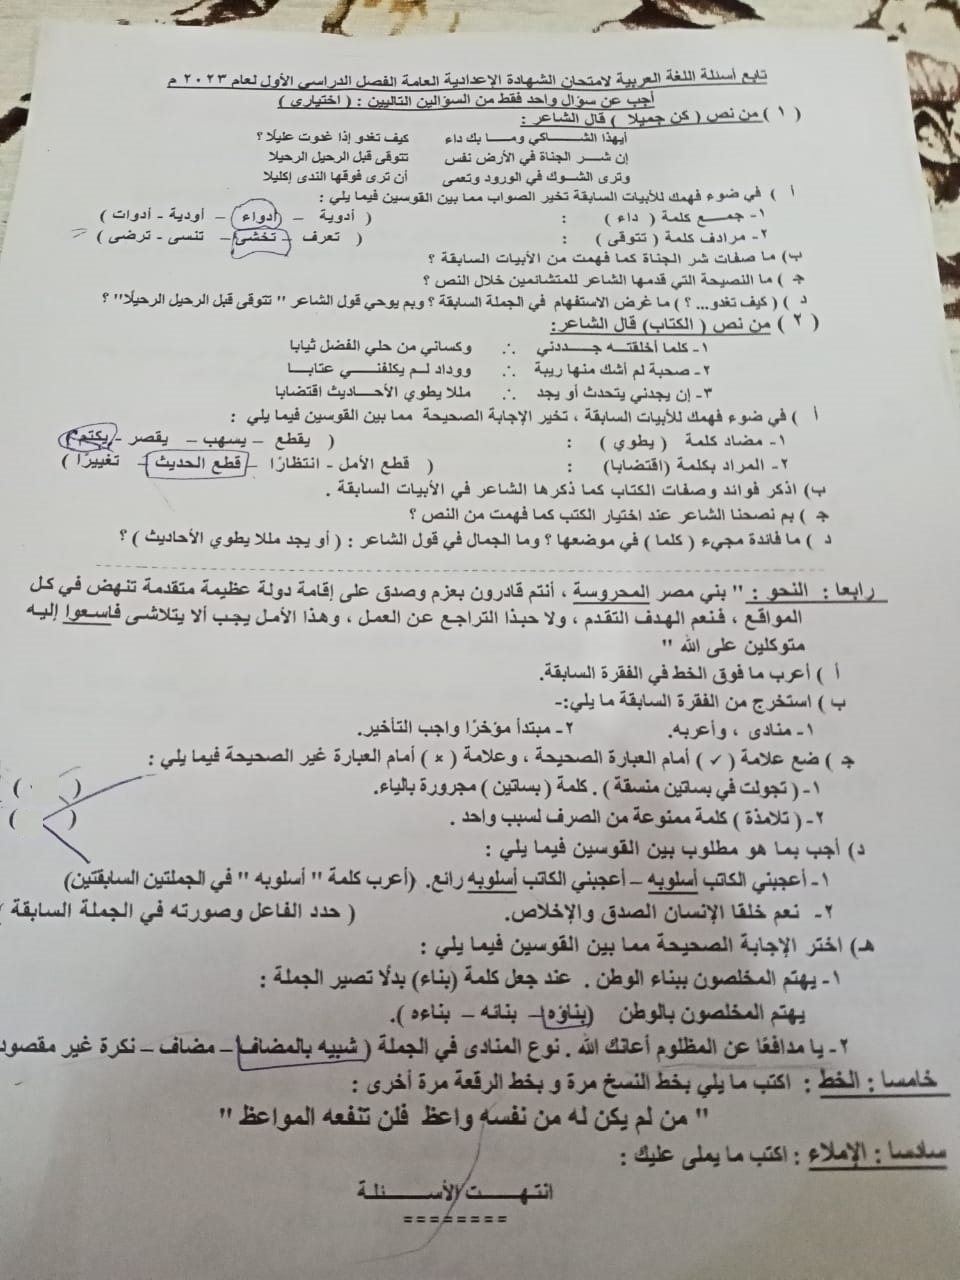 تابع أسئلة اللغة العربية لامتحان الشهادة الإعدادية العامة الفصل الدراسي الأول لعام ٢٠٢٣ م
أجب عن سؤال واحد فقط من السؤالين التاليين : ( اختيارى )
( ١ ) من نص ( كن جميلا ) قال الشاعر :
أيهذا الشـــاكي ومـــا بك داء كيف تغدو إذا غدوت عليلا ؟
إن شـــر الجناة في الأرض نفس تتوقى قبل الرحيل الرحيلا
وترى الشـوك في الورود وتعمى أن ترى فوقها الندى إكليلا
أ ) في ضوء فهمك للأبيات السابقة تخير الصواب مما بين القوسين فيما يلي :
١- جمـــع كلمة ( داء ) : ( أدوية – أدواء – أودية - أدوات )
٢- مرادف كلمة ( تتوقى ) : ( تعرف – تخشى – تنسى - ترضى )
ب) ما صفات شر الجناة كما فهمت من الأبيات السابقة ؟
جـ ) ما النصيحة التي قدمها الشاعر للمتشائمين خلال النص ؟
د ) ( كيف تغدو... ؟ ) ما غرض الاستفهام في الجملة السابقة ؟ وبم يوحي قول الشاعر " تتوقى قبل الرحيل الرحيلا" ؟
( ٢ ) من نص ( الكتاب) قال الشاعر:
١- كلما أخلقتـــه جـــددني ∴ وكساني من حلي الفضل ثيابا
٢- صحبة لم أشك منها ريبة ∴ ووداد لـــم يكلفنـــي عتابـــا
٣- إن يجدني يتحدث أو يجد ∴ مللا يطوي الأحـــاديث اقتضابا
أ ) في ضوء فهمك للأبيات السابقة ، تخير الإجابة الصحيحة مما بين القوسين فيما يلي :
١- مضاد كلمة ( يطوي ) : ( يقطع – يسهب – يقصر – يكتم )
٢- المراد بكلمة (اقتضابا) : ( قطع الأمل - انتظارًا – قطع الحديث – تغييرًا )
ب) اذكر فوائد وصفات الكتاب كما ذكرها الشاعر في الأبيات السابقة .
جـ ) بم نصحنا الشاعر عند اختيار الكتب كما فهمت من النص ؟
د ) ما فائدة مجيء ( كلما ) في موضعها ؟ وما الجمال في قول الشاعر : ( أو يجد مللا يطوي الأحاديث ) ؟
رابعا : النحو : " بني مصر المحروسة ، أنتم قادرون بعزم وصدق على إقامة دولة عظيمة متقدمة تنهض في كل
المواقع ، فنعم الهدف التقدم ، ولا حبذا التراجع عن العمل ، وهذا الأمل يجب ألا يتلاشى فاسعوا إليه
متوكلين على الله "
أ ) أعرب ما فوق الخط في الفقرة السابقة.
ب ) استخرج من الفقرة السابقة ما يلي:-
١- منادى ، وأعربه. ٢- مبتدأ مؤخرًا واجب التأخير.
جـ ) ضع علامة ( ✓ ) أمام العبارة الصحيحة ، وعلامة ( × ) أمام العبارة غير الصحيحة فيما يلي :
١- ( تجولت في بساتين منسقة ) . كلمة ( بساتين ) مجرورة بالياء. ( )
٢- ( تلامذة ) كلمة ممنوعة من الصرف لسبب واحد . ( )
د) أجب بما هو مطلوب بين القوسين فيما يلي :
١- أعجبني الكاتب أسلوبه – أعجبني الكاتب أسلوبه رائع. (أعرب كلمة " أسلوبه " في الجملتين السابقتين)
٢- نعم خلقا الإنسان الصدق والإخلاص. ( حدد الفاعل وصورته في الجملة السابقة )
هـ) اختر الإجابة الصحيحة مما بين القوسين فيما يلي :
١- يهتم المخلصون ببناء الوطن . عند جعل كلمة (بناء) بدلًا تصير الجملة :
يهتم المخلصون بالوطن (بناؤه – بنائه – بناءه ).
٢- يا مدافعًا عن المظلوم أعانك الله . نوع المنادى في الجملة ( شبيه بالمضاف – مضاف – نكرة غير مقصود
خامسا : الخط : اكتب ما يلي بخط النسخ مرة و بخط الرقعة مرة أخرى :
" من لم يكن له من نفسه واعظ فلن تنفعه المواعظ "
سادسا : الإملاء : اكتب ما يملى عليك :
انتهـــت الأســـئلة
========